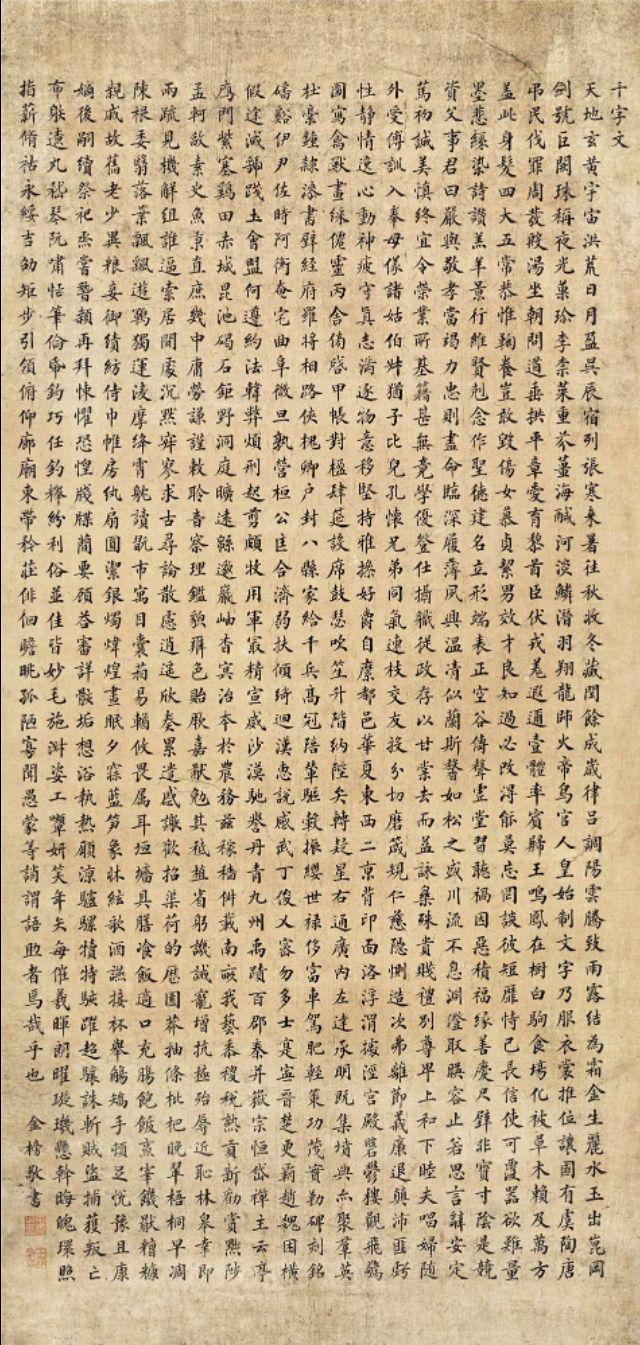 千字文
天地玄黃宇宙洪荒日月盈昃辰宿列張寒來暑往秋收冬藏閏餘成歲律呂調陽雲騰致雨露結為霜金生麗水玉出崑岡
劍號巨闕珠稱夜光菓珍李柰菜重芥薑海鹹河淡鱗潛羽翔龍師火帝鳥官人皇始制文字乃服衣裳推位讓國有虞陶唐
弔民伐罪周發殷湯坐朝問道垂拱平章愛育黎首臣伏戎羌遐邇壹體率賓歸王鳴鳳在樹白駒食場化被草木賴及萬方
蓋此身髮四大五常恭惟鞠養豈敢毀傷女慕貞絜男效才良知過必改得能莫忘罔談彼短靡恃己長信使可覆器欲難量
墨悲絲染詩讚羔羊景行維賢剋念作聖德建名立形端表正空谷傳聲虛堂習聽禍因惡積福緣善慶尺璧非寶寸陰是競
資父事君曰嚴與敬孝當竭力忠則盡命臨深履薄夙興溫凊似蘭斯馨如松之盛川流不息淵澄取暎容止若思言辭安定
篤初誠美慎終宜令榮業所基籍甚無竟學優登仕攝職從政存以甘棠去而益詠樂殊貴賤禮別尊卑上和下睦夫唱婦隨
外受傅訓入奉母儀諸姑伯叔猶子比兒孔懷兄弟同氣連枝交友投分切磨箴規仁慈隱惻造次弗離節義廉退顛沛匪虧
性靜情逸心動神疲守真志滿逐物意移堅持雅操好爵自縻都邑華夏東西二京背印面洛浮渭據涇宮殿盤鬱樓觀飛驚
圖寫禽獸畫綵僊靈丙舍傍啓甲帳對楹肆筵設席鼓瑟吹笙升階納陛弁轉疑星右通廣內左達承明既集墳典亦聚羣英
杜稾鍾隸漆書壁經府羅將相路俠槐卿戶封八縣家給千兵高冠陪輦驅轂振纓世祿侈富車駕肥輕策功茂實勒碑刻銘
磻谿伊尹佐時阿衡奄宅曲阜微旦孰營桓公匡合濟弱扶傾綺迴漢惠說感武丁俊乂密勿多士寔寧晉楚更霸趙魏困橫
假途滅虢踐土會盟何遵約法韓弊煩刑起剪頗牧用軍最精宣威沙漠馳譽丹青九州禹蹟百郡秦并嶽宗恒岱禪主云亭
鴈門紫塞鷄田赤城昆池碣石鉅野洞庭曠遠緜邈巖岫杳冥治本於農務茲稼穡俶載南畝我藝黍稷稅熟貢新勸賞黜陟
孟軻敦素史魚秉直庶幾中庸勞謙謹敕聆音察理鑑貌辨色貽厥嘉猷勉其祗植省躬譏誡寵增抗極殆辱近恥林皋幸即
兩疏見機解組誰逼索居閒處沉默寂寥求古尋論散慮逍遙欣奏累遣慼謝歡招渠荷的歷園莽抽條枇杷晚翠梧桐早凋
陳根委翳落葉飄颻遊鵾獨運淩摩絳霄耽讀翫市寓目囊箱易輶攸畏屬耳垣墻具膳飡飯適口充腸飽飫烹宰饑厭糟糠
親戚故舊老少異糧妾御績紡侍巾帷房紈扇圓潔銀燭煒煌晝眠夕寐藍筍象牀絃歌酒讌接杯舉觴矯手頓足悅豫且康
嫡後嗣續祭祀烝嘗稽顙再拜悚懼恐惶牋牒簡要顧荅審詳骸垢想浴執熱願涼驢騾犢特駭躍超驤誅斬賊盜捕獲叛亡
布射遼丸嵇琴阮嘯恬筆倫紙鈞巧任釣釋紛利俗並佳皆妙毛施淑姿工顰妍笑年矢每催羲暉朗曜璇璣懸斡晦魄環照
指薪脩祜永綏吉劭矩步引領俯仰廊廟束帶矜莊徘徊瞻眺孤陋寡聞愚蒙等誚謂語助者焉哉乎也
金榜敬書